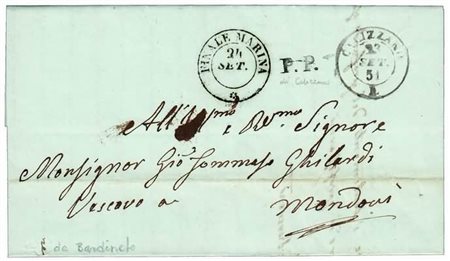 FINALE MARINA
24
SET.
P.P.
CALIZZANO
23
SET.
51
All' Ill.mo e Rev.mo Signore
Monsignor Gio Tommaso Ghilardi
Vescovo a Mondovì
da Bardineto